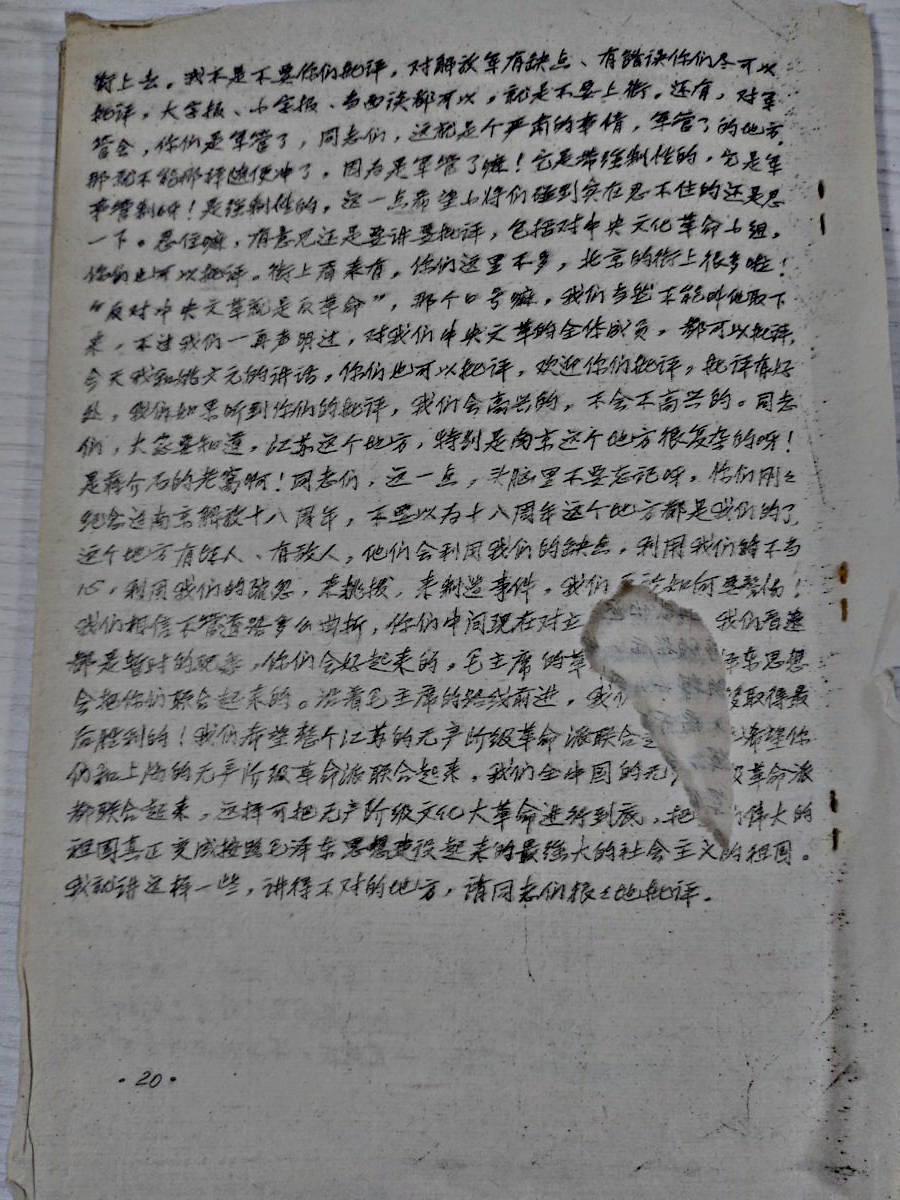 街上去。我不是不要你们批评，对解放军有缺点、有错误你们尽可以
批评，大字报、小字报、当面谈都可以，就是不要上街。还有，对军
管会，你们是军管了，同志们，这就是个严肃的事情，军管了的地方，
那就不能那样随便冲了，因为是军管了嘛！它是带强制性的，它是军
事管制呀！是强制性的，这一点希望小将们碰到实在忍不住的还是忍
一下。忍住嘛，有意见还是要讲要批评，包括对中央文化革命小组，
你们也可以批评。街上有来有，你们这里不多，北京的街上很多啦！
“反对中央文革就是反革命”，那个口号嘛，我们当然不能叫他取下
来，不过我们一再声明过，对我们中央文革的全体成员，都可以批评，
今天我和姚文元的讲话，你们也可以批评，欢迎你们批评，批评有好
处，我们如果听到你们的批评，我们会高兴的，不会不高兴的。同志
们，大家要知道，江苏这个地方，特别是南京这个地方很复杂的呀！
是蒋介石的老窝啊！同志们，这一点，头脑里不要忘记呀。你们刚々
纪念过南京解放十八周年，不要以为十八周年这个地方都是我们的了
这个地方有坏人、有敌人，他们会利用我们的缺点，利用我们的不当
心，利用我们的疏忽，来挑拨，来制造事件，我们 如何要警惕！
我们相信不管道路多么曲折，你们中间现在对立 我们看这
都是暂时的现象，你们会好起来的。毛主席的革 泽东思想
会把你们联合起来的。沿着毛主席的路线前进，我们 取得最
后胜利的！我们希望整个江苏的无产阶级革命派联合 希望你
们和上海的无产阶级革命派联合起来，我们全中国的无 级革命派
都联合起来，这样可把无产阶级文化大革命进行到底，把 伟大的
祖国真正变成按照毛泽东思想建设起来的最强大的社会主义的祖国。
我就讲这样一些，讲得不对的地方，请同志们狠々地批评。
·20·